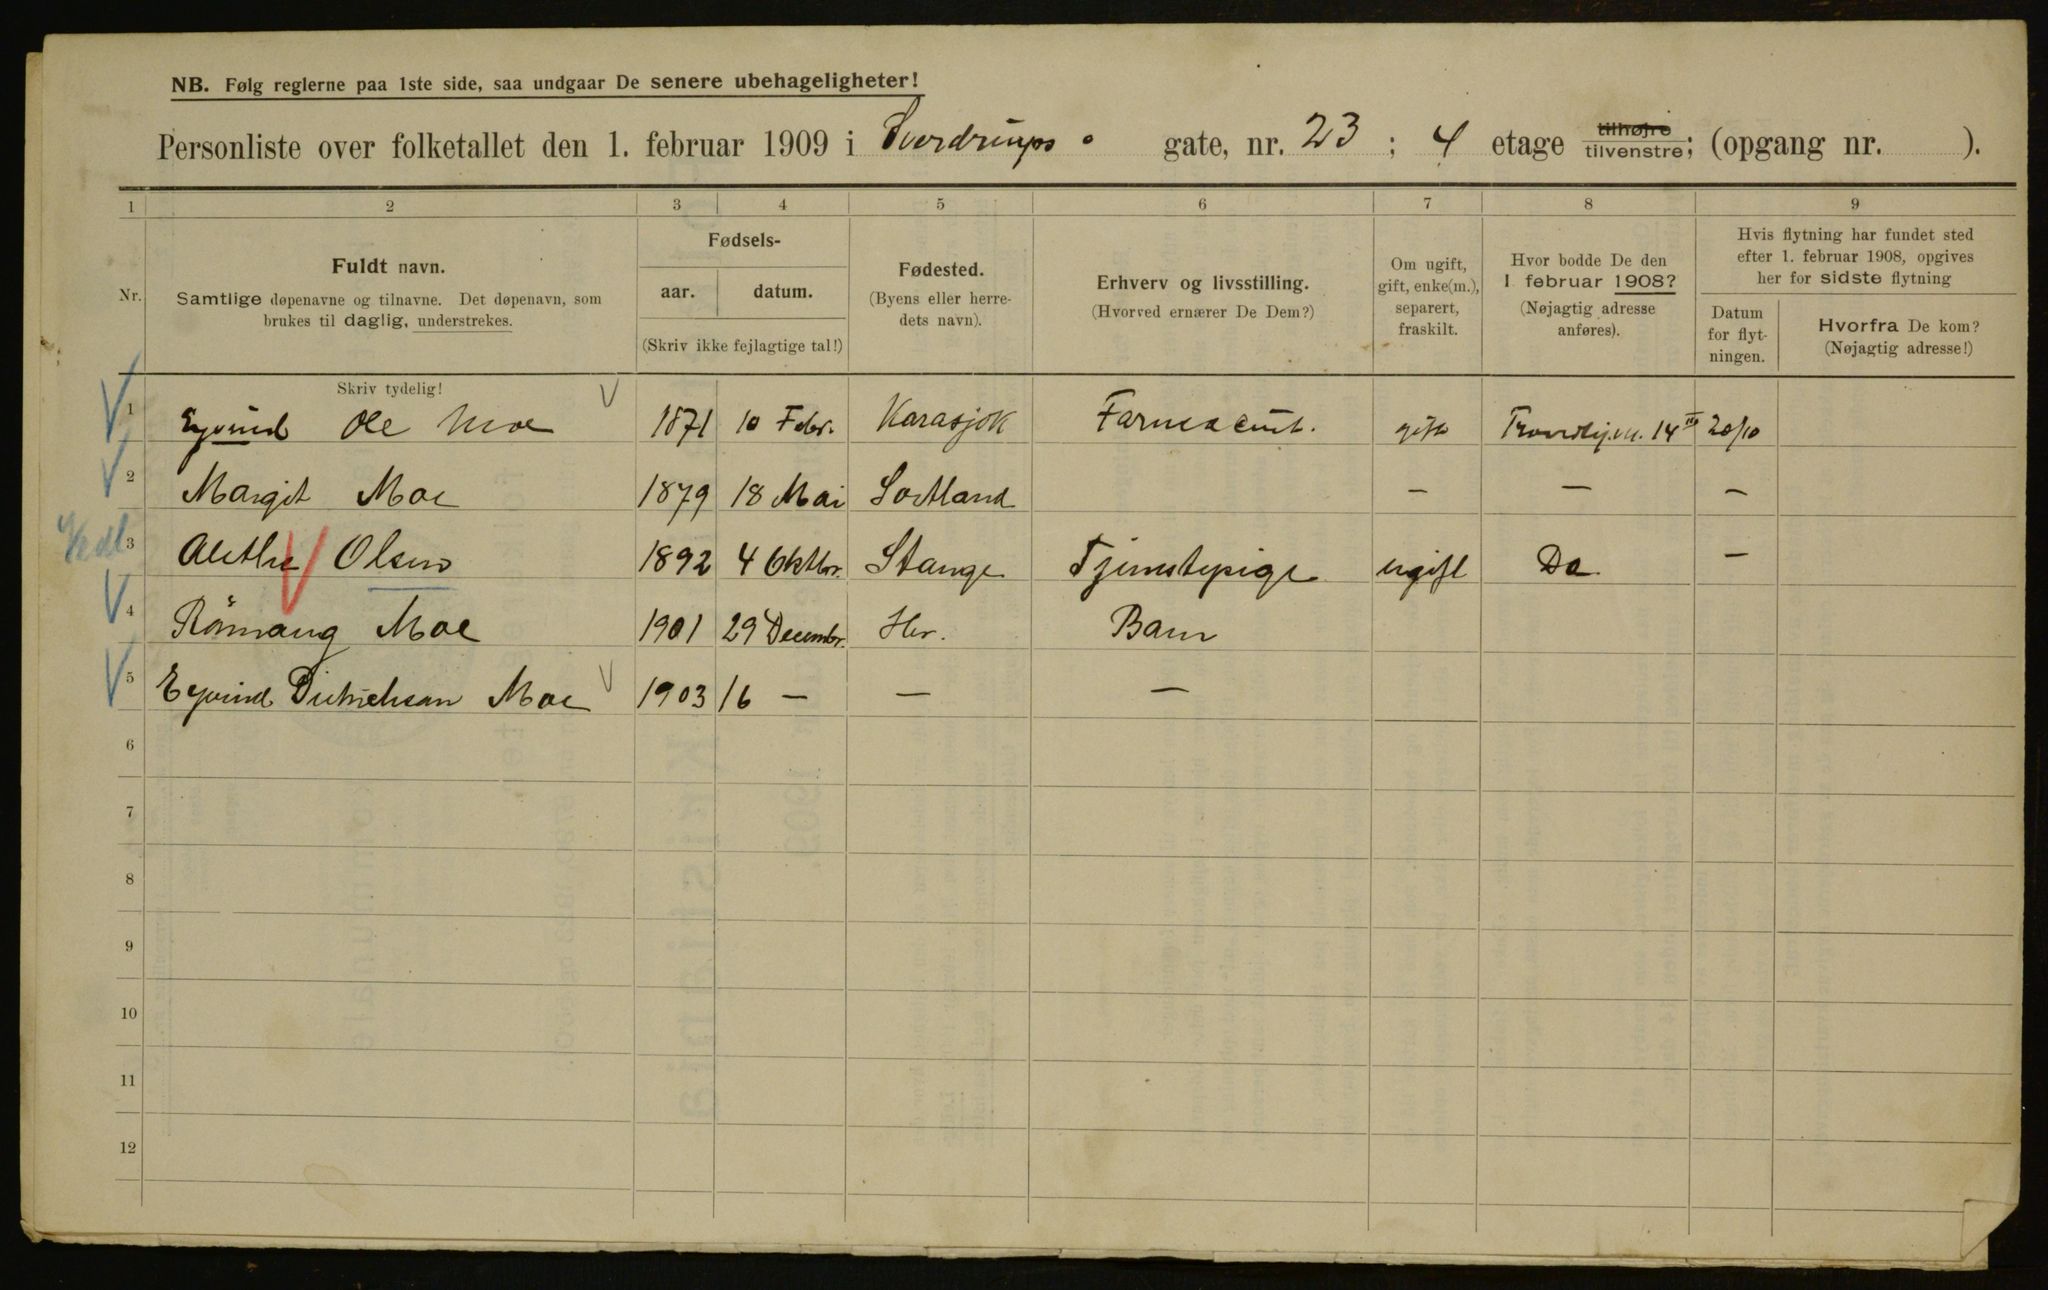 NB. Følg reglerne paa 1ste side, saa undgaar De senere ubehageligheter!
Personliste over folketallet den 1. februar 1909 i Sverdrups gate, nr. 23 ; 4 etage tilhøjre tilvenstre; (opgang nr. ).
1 2 3 4 5 6 7 8 9
Nr.
Fuldt navn.
Samtlige døpenavne og tilnavne. Det døpenavn, som
brukes til daglig, understrekes.
Fødsels-
aar. datum.
(Skriv ikke fejlagtige tal!)
Fødested.
(Byens eller herre-
dets navn).
Erhverv og livsstilling.
(Hvorved ernærer De Dem?)
Om ugift,
gift, enke(m.),
separert,
fraskilt.
Hvor bodde De den
1 februar 1908?
(Nøjagtig adresse
anføres).
Hvis flytning har fundet sted
efter 1. februar 1908, opgives
her for sidste flytning
Datum
for flyt-
ningen.
Hvorfra De kom?
(Nøjagtig adresse!)
Skriv tydelig!
1 Eyvind Ole Moe 1871 10 Febr. Karasjok Farmaceut. gift 14 20/10
2 Margit Moe 1879 18 Mai Sortland — — —
3 Olsen 1892 4 Oktbr. Stange Tjenestepige ugift Do —
4 Rönnaug Moe 1901 29 Decembr. Her. Barn
5 Eyvind Dietrichson Moe 1903 16 — — —
6
7
8
9
10
11
12